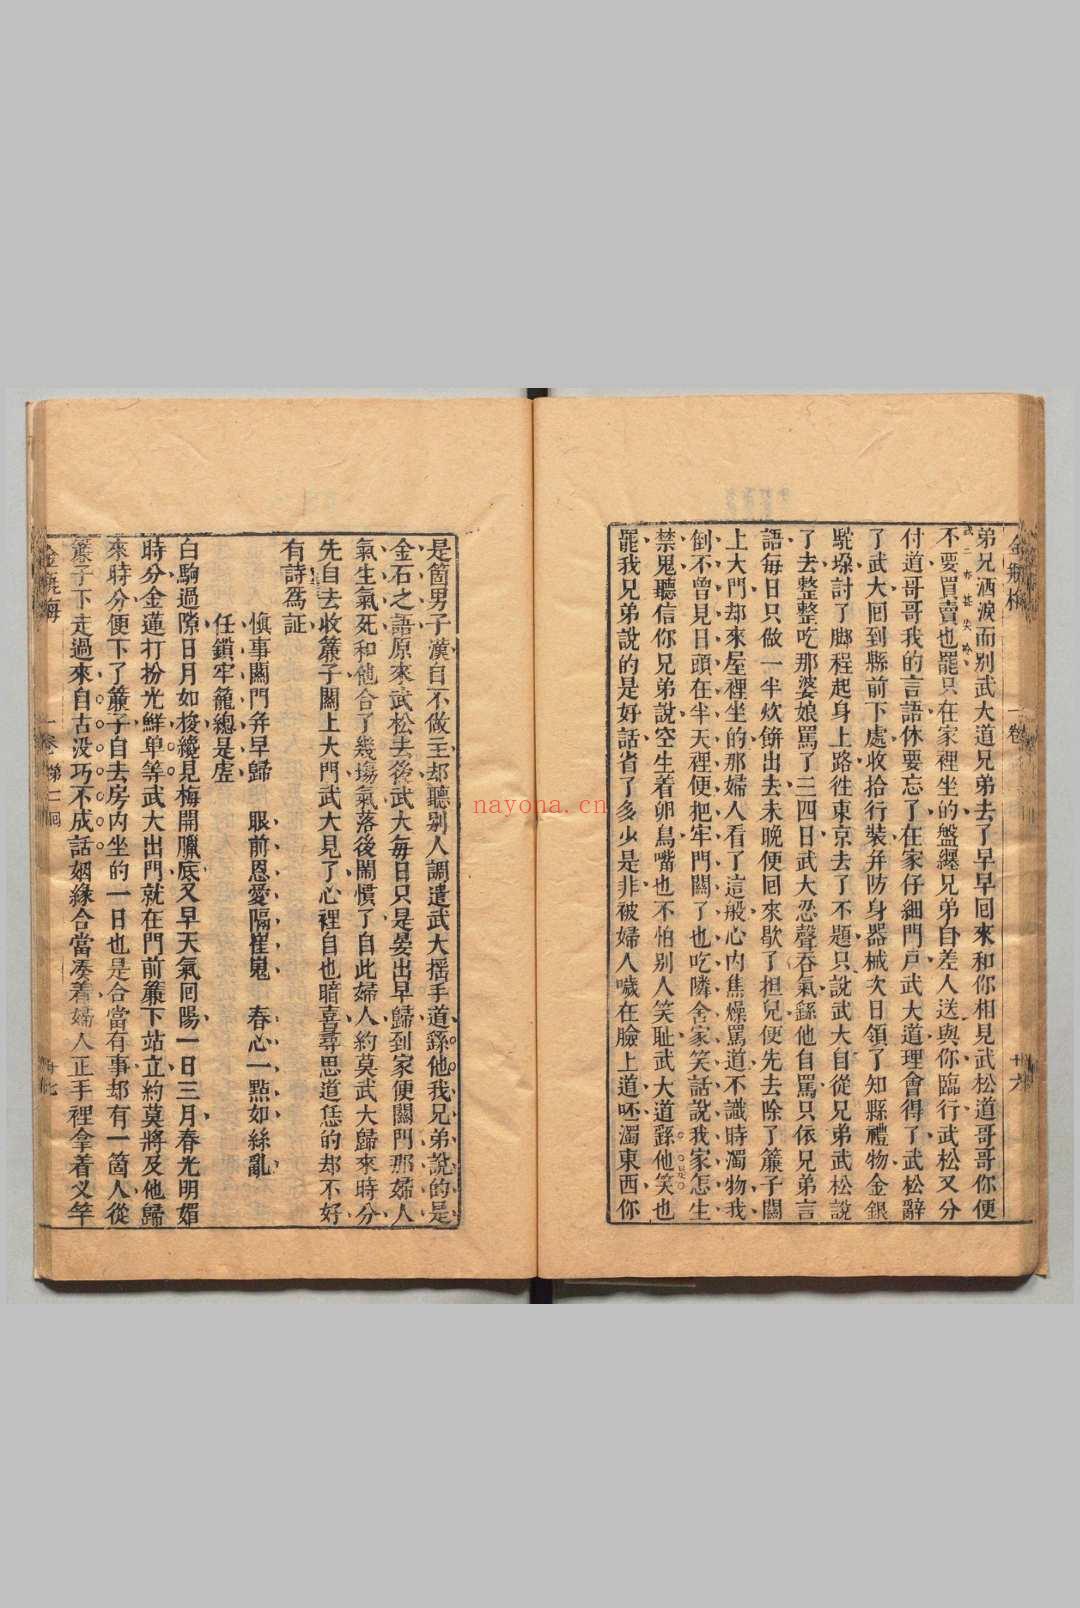 金瓶梅
一卷
十六
弟兄洒淚而別武大道兄弟去了早早回來和你相見武松道哥哥你便
不要買賣也罷只在家裡坐的盤纏兄弟自差人送與你臨行武松又分
付道哥哥我的言語休要忘了在家仔細門戶武大道理會得了武松辭
了武大回到縣前下處收拾行裝并防身器械次日領了知縣禮物金銀
駝垛討了脚程起身上路徃東京去了不題只說武大自從兄弟武松說
了去整整吃那婆娘罵了三四日武大忍聲吞氣繇他自罵只依兄弟言
語每日只做一半炊餅出去未晚便回來歇了担兒便先去除了簾子關
上大門却來屋裡坐的那婦人看了這般心內焦燥罵道不識時濁物我
倒不曾見日頭在半天裡便把牢門關了也吃隣舍家笑話說我家怎生
禁鬼聽信你兄弟說空生着卵鳥嘴也不怕別人笑耻武大道繇他笑也
罷我兄弟說的是好話省了多少是非被婦人噦在臉上道呸濁東西你
是箇男子漢自不做主却聽別人調遣武大搖手道繇他我兄弟說的是
金石之語原來武松去後武大每日只是晏出早歸到家便關門那婦人
氣生氣死和他合了幾塲氣落後鬧慣了自此婦人約莫武大歸來時分
先自去收簾子關上大門武大見了心裡自也暗喜尋思道恁的却不好
有詩爲証
慎事關門并早歸　眼前恩愛隔崔嵬　春心一點如絲亂
任鎖牢籠總是虛
白駒過隙日月如梭纔見梅開臘底又早天氣回陽一日三月春光明媚
時分金蓮打扮光鮮单等武大出門就在門前簾下站立約莫將及他歸
來時分便下了簾子自去房內坐的一日也是合當有事却有一箇人從
簾子下走過來自古没巧不成話姻緣合當凑着婦人正手裡拿着义竿
金瓶梅
一卷第二回
nayona.cn